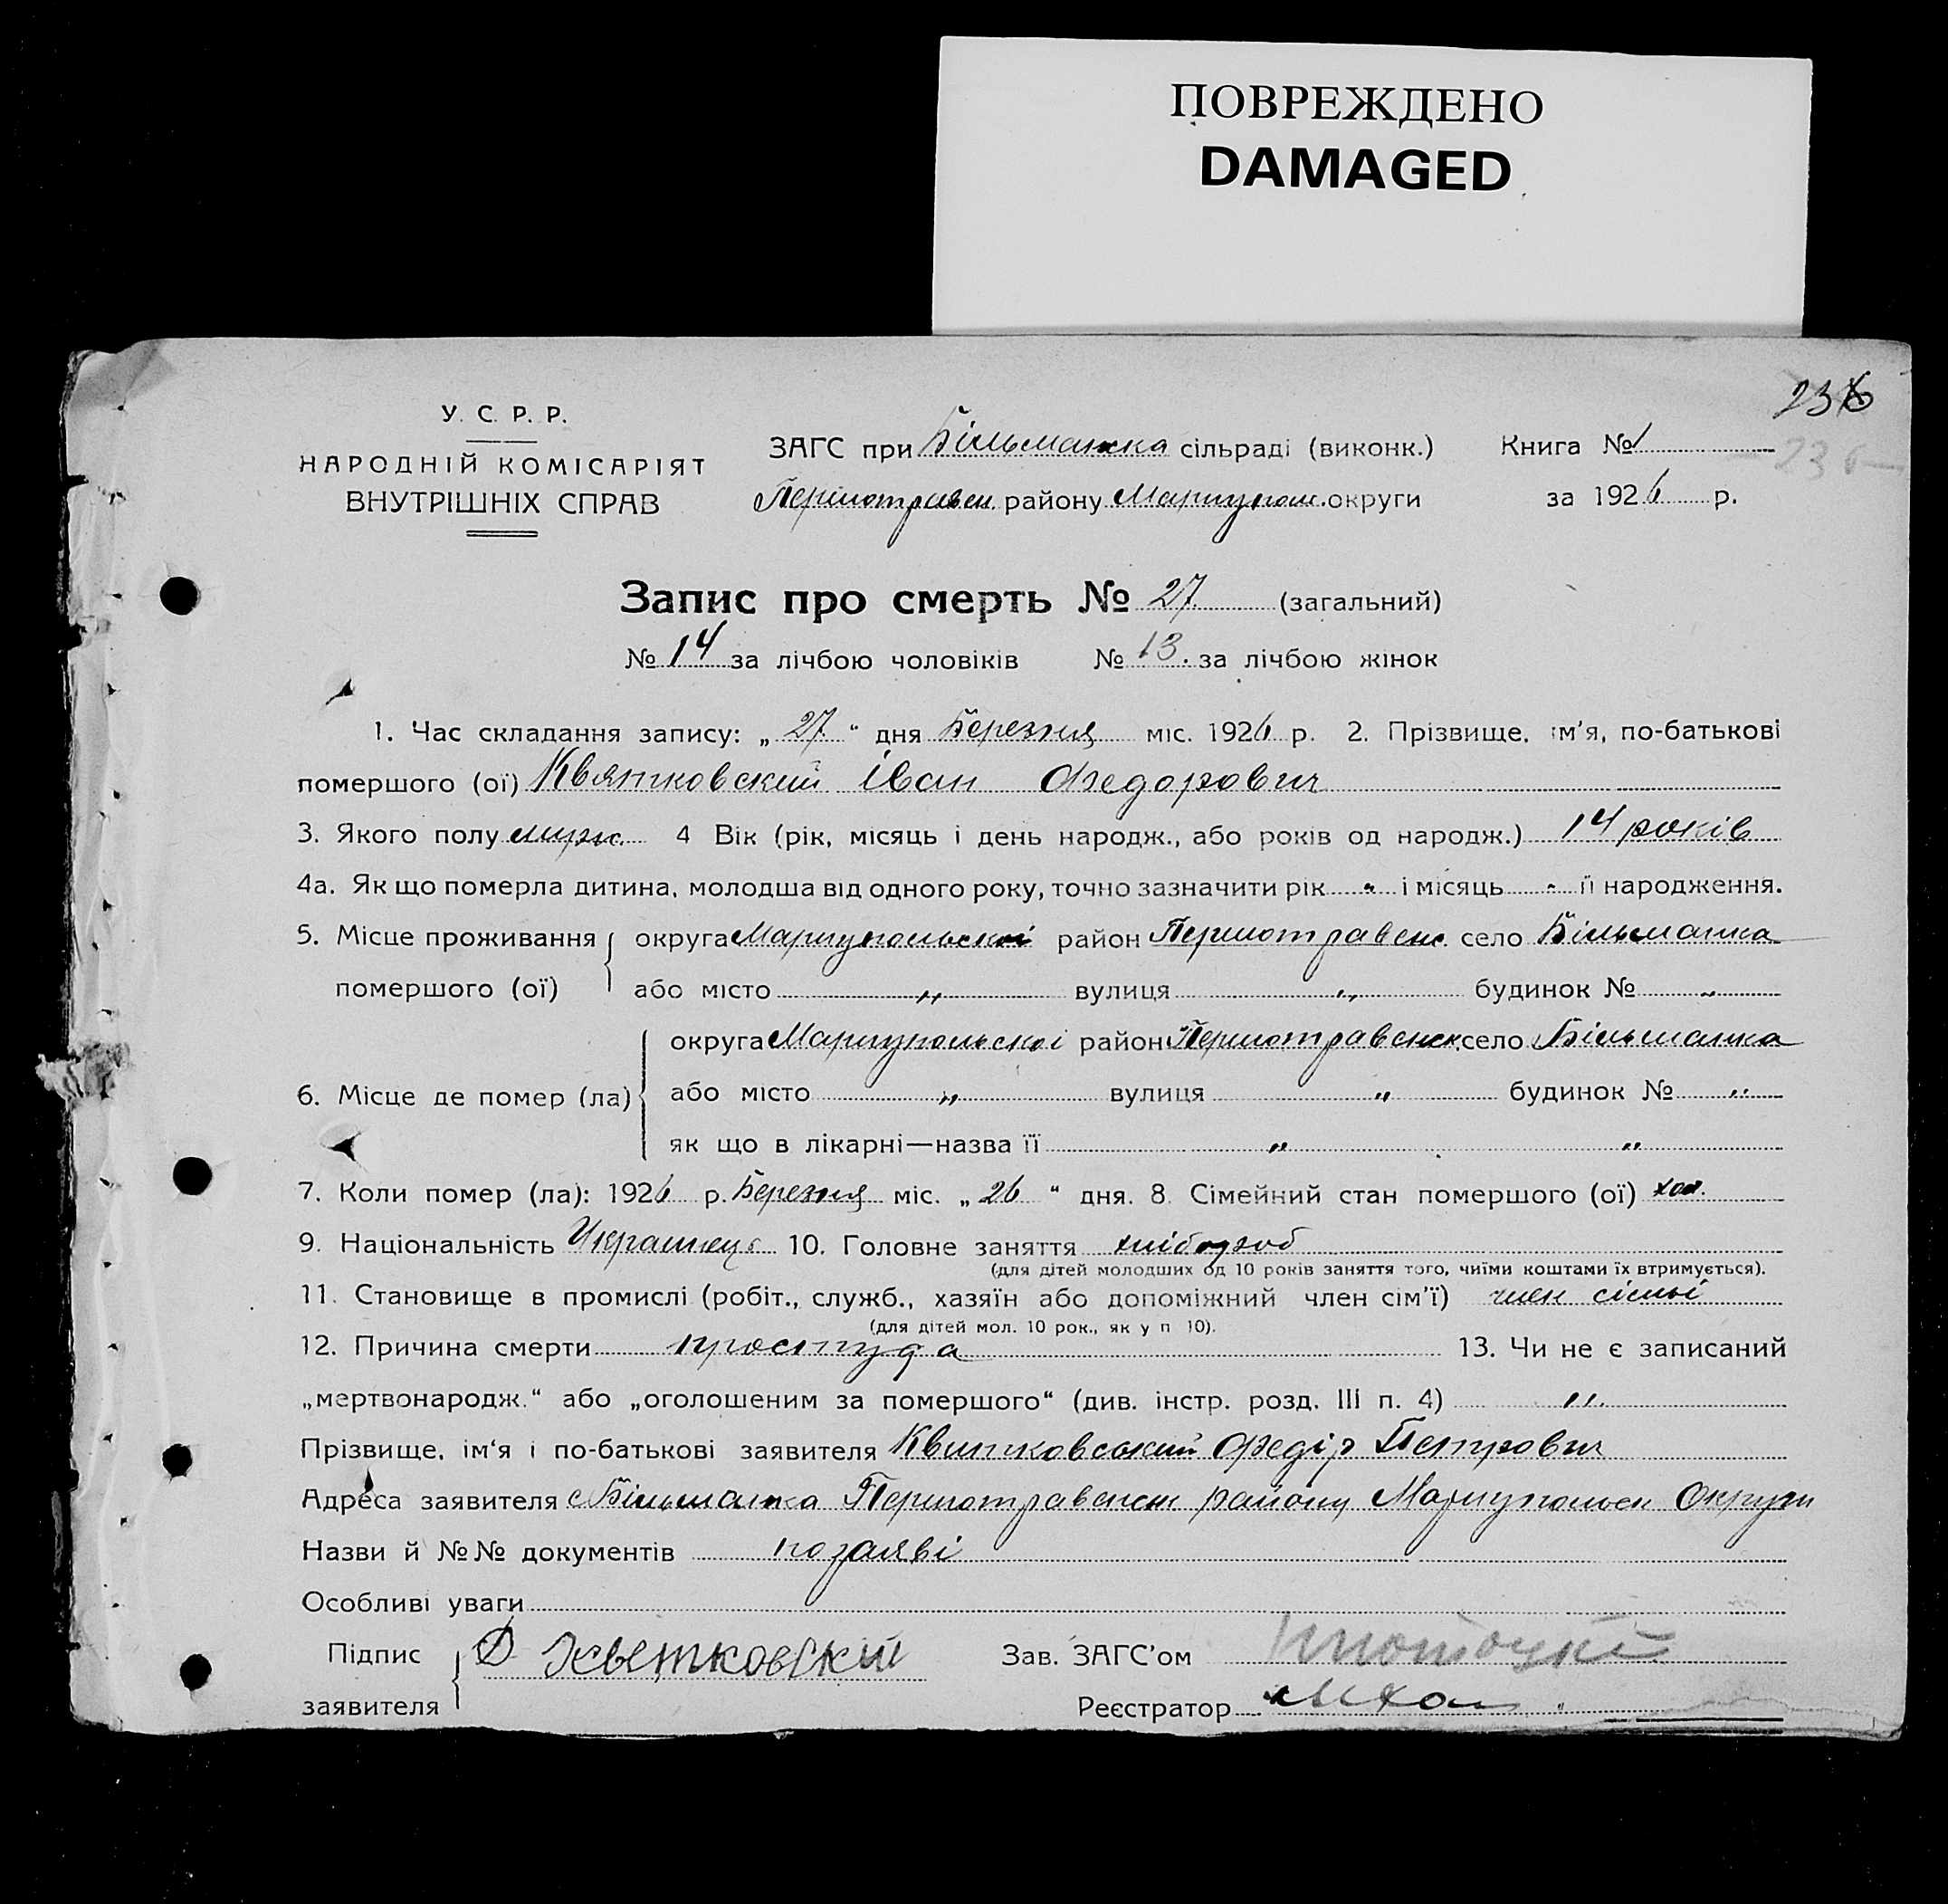 ПОВРЕЖДЕНО
DAMAGED
236
У. С. Р. Р.
НАРОДНІЙ КОМІСАРІЯТ
ВНУТРІШНІХ СПРАВ
ЗАГС при Більманка сільраді (виконк.) Книга № 1
Першотравен. району Маріупол. округи за 1926 р.
Запис про смерть № 27 (загальний)
№ 14 за лічбою чоловіків № 13. за лічбою жінок
1. Час складання запису: „27“ дня Березня міс. 1926 р. 2. Прізвище, ім'я, по-батькові
помершого (ої) Квятковский Іван Федорович
3. Якого полу муж. 4 Вік (рік, місяць і день народж., або років од народж.) 14 років
4а. Як що померла дитина, молодша від одного року, точно зазначити рік " і місяць " її народження.
5. Місце проживання округа Мариупольской район Першотравенс. село Більманка
помершого (ої) або місто " вулиця " будинок № "
округа Мариупольскоі район Першотравенск. село Більманка
6. Місце де помер (ла) або місто " вулиця " будинок № "
як що в лікарні—назва її " "
7. Коли помер (ла): 1926 р. Березня міс. „26“ дня. 8. Сімейний стан помершого (ої) хол.
9. Національність Украінець 10. Головне заняття хлібороб
(для дітей молодших од 10 років заняття того, чиїми коштами їх втримується).
11. Становище в промислі (робіт., служб., хазяїн або допоміжний член сім'ї) член сімьі
(для дітей мол. 10 рок., як у п 10).
12. Причина смерти простуда 13. Чи не є записаний
„мертвонародж.“ або „оголошеним за помершого“ (див. інстр. розд. III п. 4) "
Прізвище, ім'я і по-батькові заявителя Квитковський Федір Петрович
Адреса заявителя с Більманка Першотравенск району Мариупольск Округи
Назви й №№ документів по заяві
Особливі уваги
Підпис Ф Кветковский Зав. ЗАГС'ом
заявителя Реєстратор